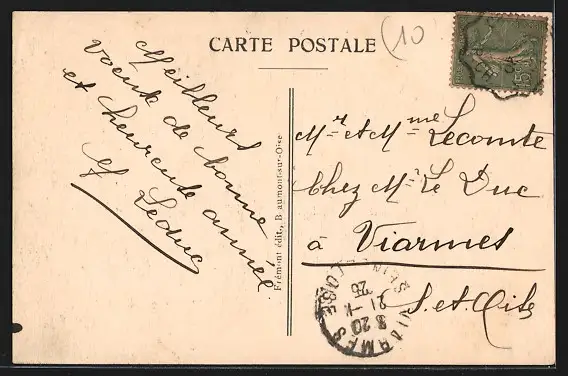 CARTE POSTALE
(10
Meilleurs
voeux de bonne
et heureuse année
Leduc
Frémont édit., Beaumont-sur-Oise
Mr et Mme Lecomte
Chez Mr Le Duc
à Viarmes
S. et Oise
15
VIARMES
SEINE
OISE
8 20
21 -1
25